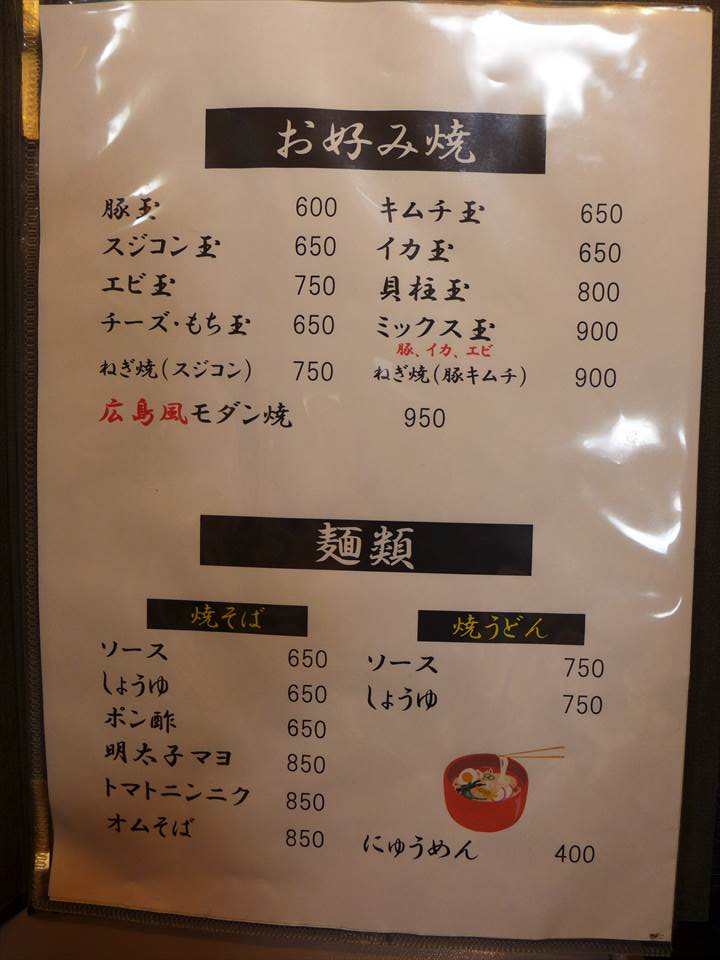 お好み焼
豚玉 600
スジコン玉 650
エビ玉 750
チーズ・もち玉 650
ねぎ焼(スジコン) 750
広島風モダン焼 950
キムチ玉 650
イカ玉 650
貝柱玉 800
ミックス玉 900
豚、イカ、エビ
ねぎ焼(豚キムチ) 900
麺類
焼そば
ソース 650
しょうゆ 650
ポン酢 650
明太子マヨ 850
トマトニンニク 850
オムそば 850
焼うどん
ソース 750
しょうゆ 750
にゅうめん 400